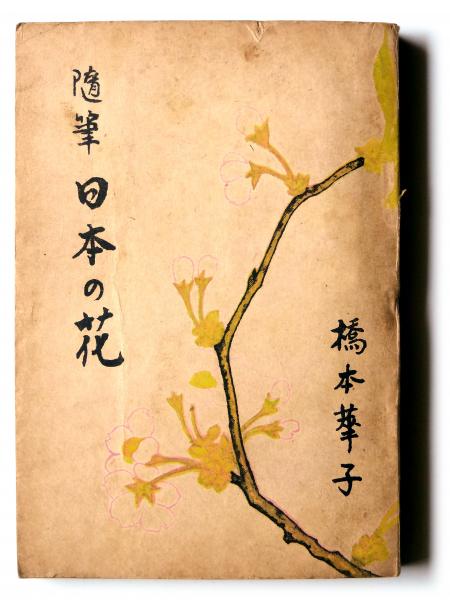 隨筆 日本の花
橋本華子